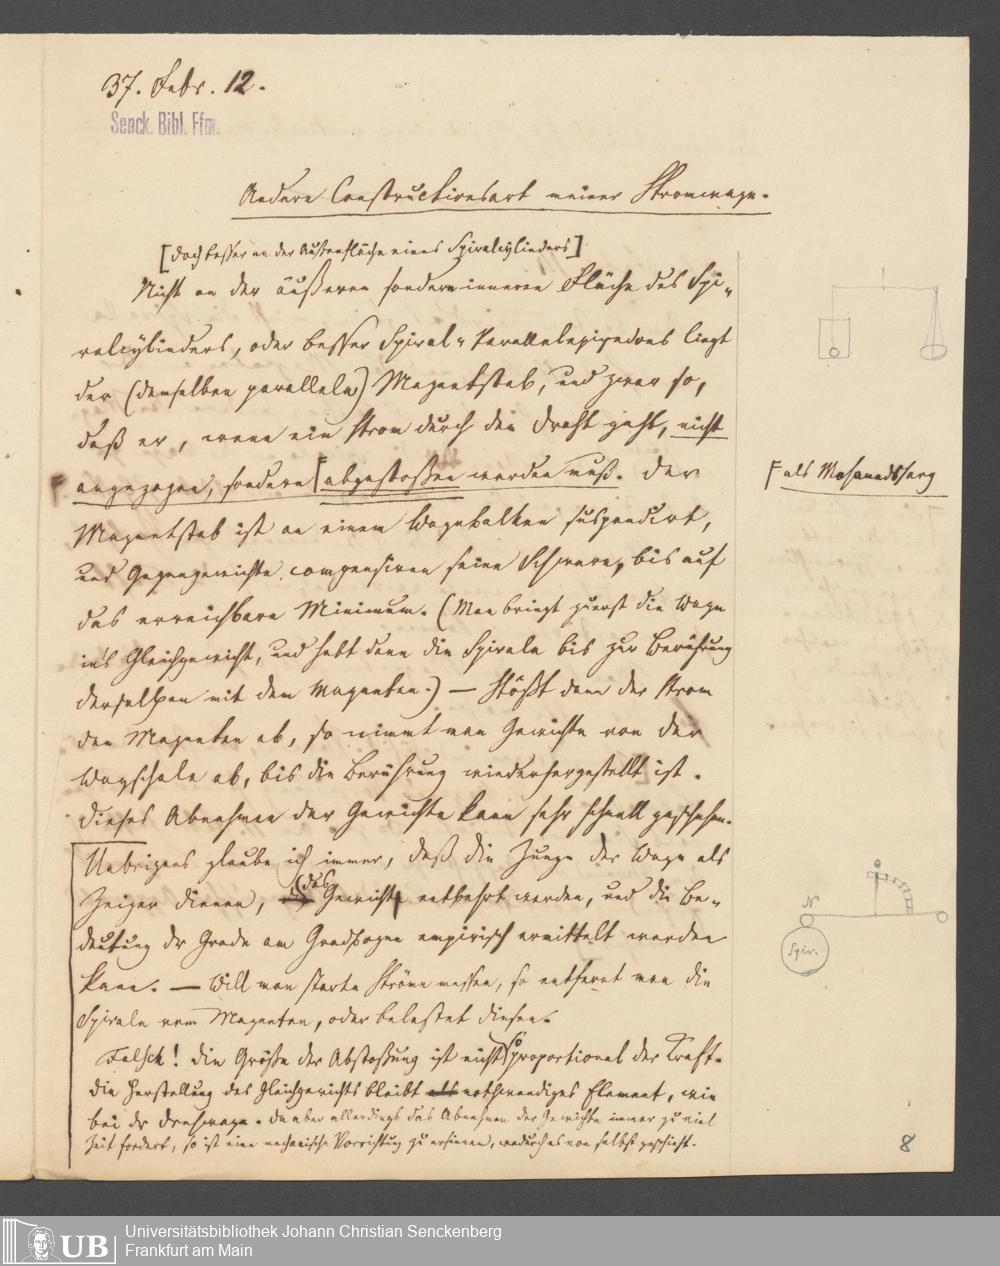 37. Febr. 12.
Senck. Bibl. Ffm.
Andere Constructionsart meiner Stromwage.
[doch besser an der Außenfläche eines Spiralcylinders]
Nicht an der äußeren sondern inneren Fläche des Spi-
ralcylinders, oder besser Spiral-Parallelepipedons liegt
der (demselben parallele) Magnetstab, und zwar so,
daß er, wenn ein Strom durch den Draht geht, nicht
angezogen, sondern abgestoßen werden muß. Der
als
Magnetstab ist an einem Wagebalken suspendirt,
und Gegengewichte compensiren seine Schwere, bis auf
das erreichbare Minimum. (Man bringt zuerst die Wage
in's Gleichgewicht, und hebt dann die Spirale bis zur Berührung
derselben mit dem Magneten.) — Stößt dann der Strom
den Magneten ab, so nimmt man Gewichte von der
Wagschale ab, bis die Berührung wiederhergestellt ist.
Dieses Abnehmen der Gewichte kann sehr schnell geschehen.
Uebrigens glaube ich immer, daß die Zunge der Wage als
Zeiger dienen, das Gewicht entbehrt werden, und die Be-
deutung der Grade am Gradbogen empirisch ermittelt werden
kann. — Will man starke Ströme messen, so entfernt man die
Spirale vom Magneten, oder belastet diesen.
N
Spir.
Falsch! Die Größe der Abstoßung ist nicht so proportional der Kraft.
Die Herstellung des Gleichgewichts bleibt nothwendiges Element, wie
bei der Drehwage. Da aber allerdings das Abnehmen der Gewichte immer zu viel
Zeit fordert, so ist eine mechanische Vorrichtung zu ersinnen, wodurch es von selbst geschieht.
8
UB
Universitätsbibliothek Johann Christian Senckenberg
Frankfurt am Main